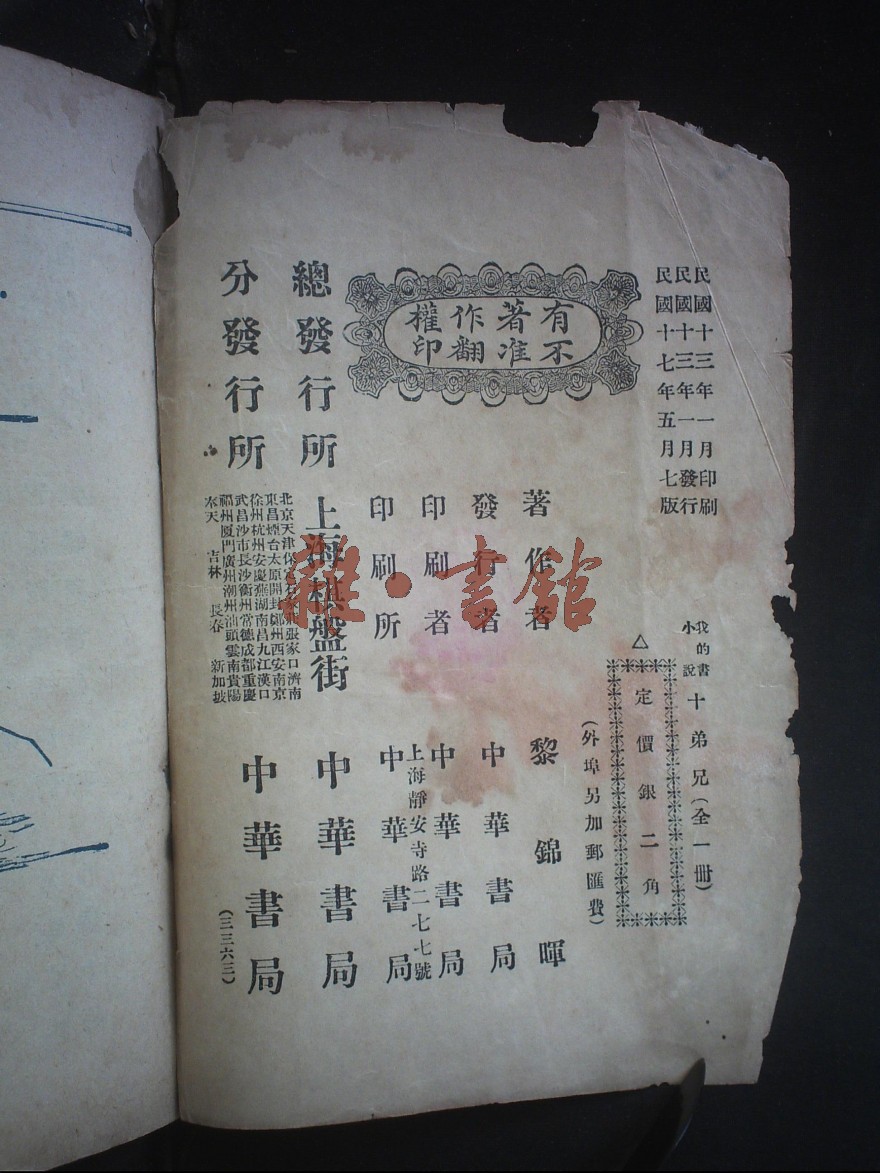 民國十三年一月印刷
民國十三年一月發行
民國十七年五月七版
有著作權
不准翻印
我的書
小說
十弟兄(全一冊)
定價銀二角
(外埠另加郵匯費)
著作者 黎錦暉
發行者 中華書局
印刷者 中華書局
上海靜安寺路二七七號
印刷所 中華書局
總發行所 上海棋盤街 中華書局
分發行所
北京天津保定石家莊張家口濟南
東昌煙台太原開封鄭州西安南京
徐州杭州安慶蕪湖南昌九江漢口
武昌沙市長沙衡州常德成都重慶
福州厦門廣州潮州汕頭雲南貴陽
奉天 吉林 長春 新加坡
中華書局
(三三六三)
雜·書館